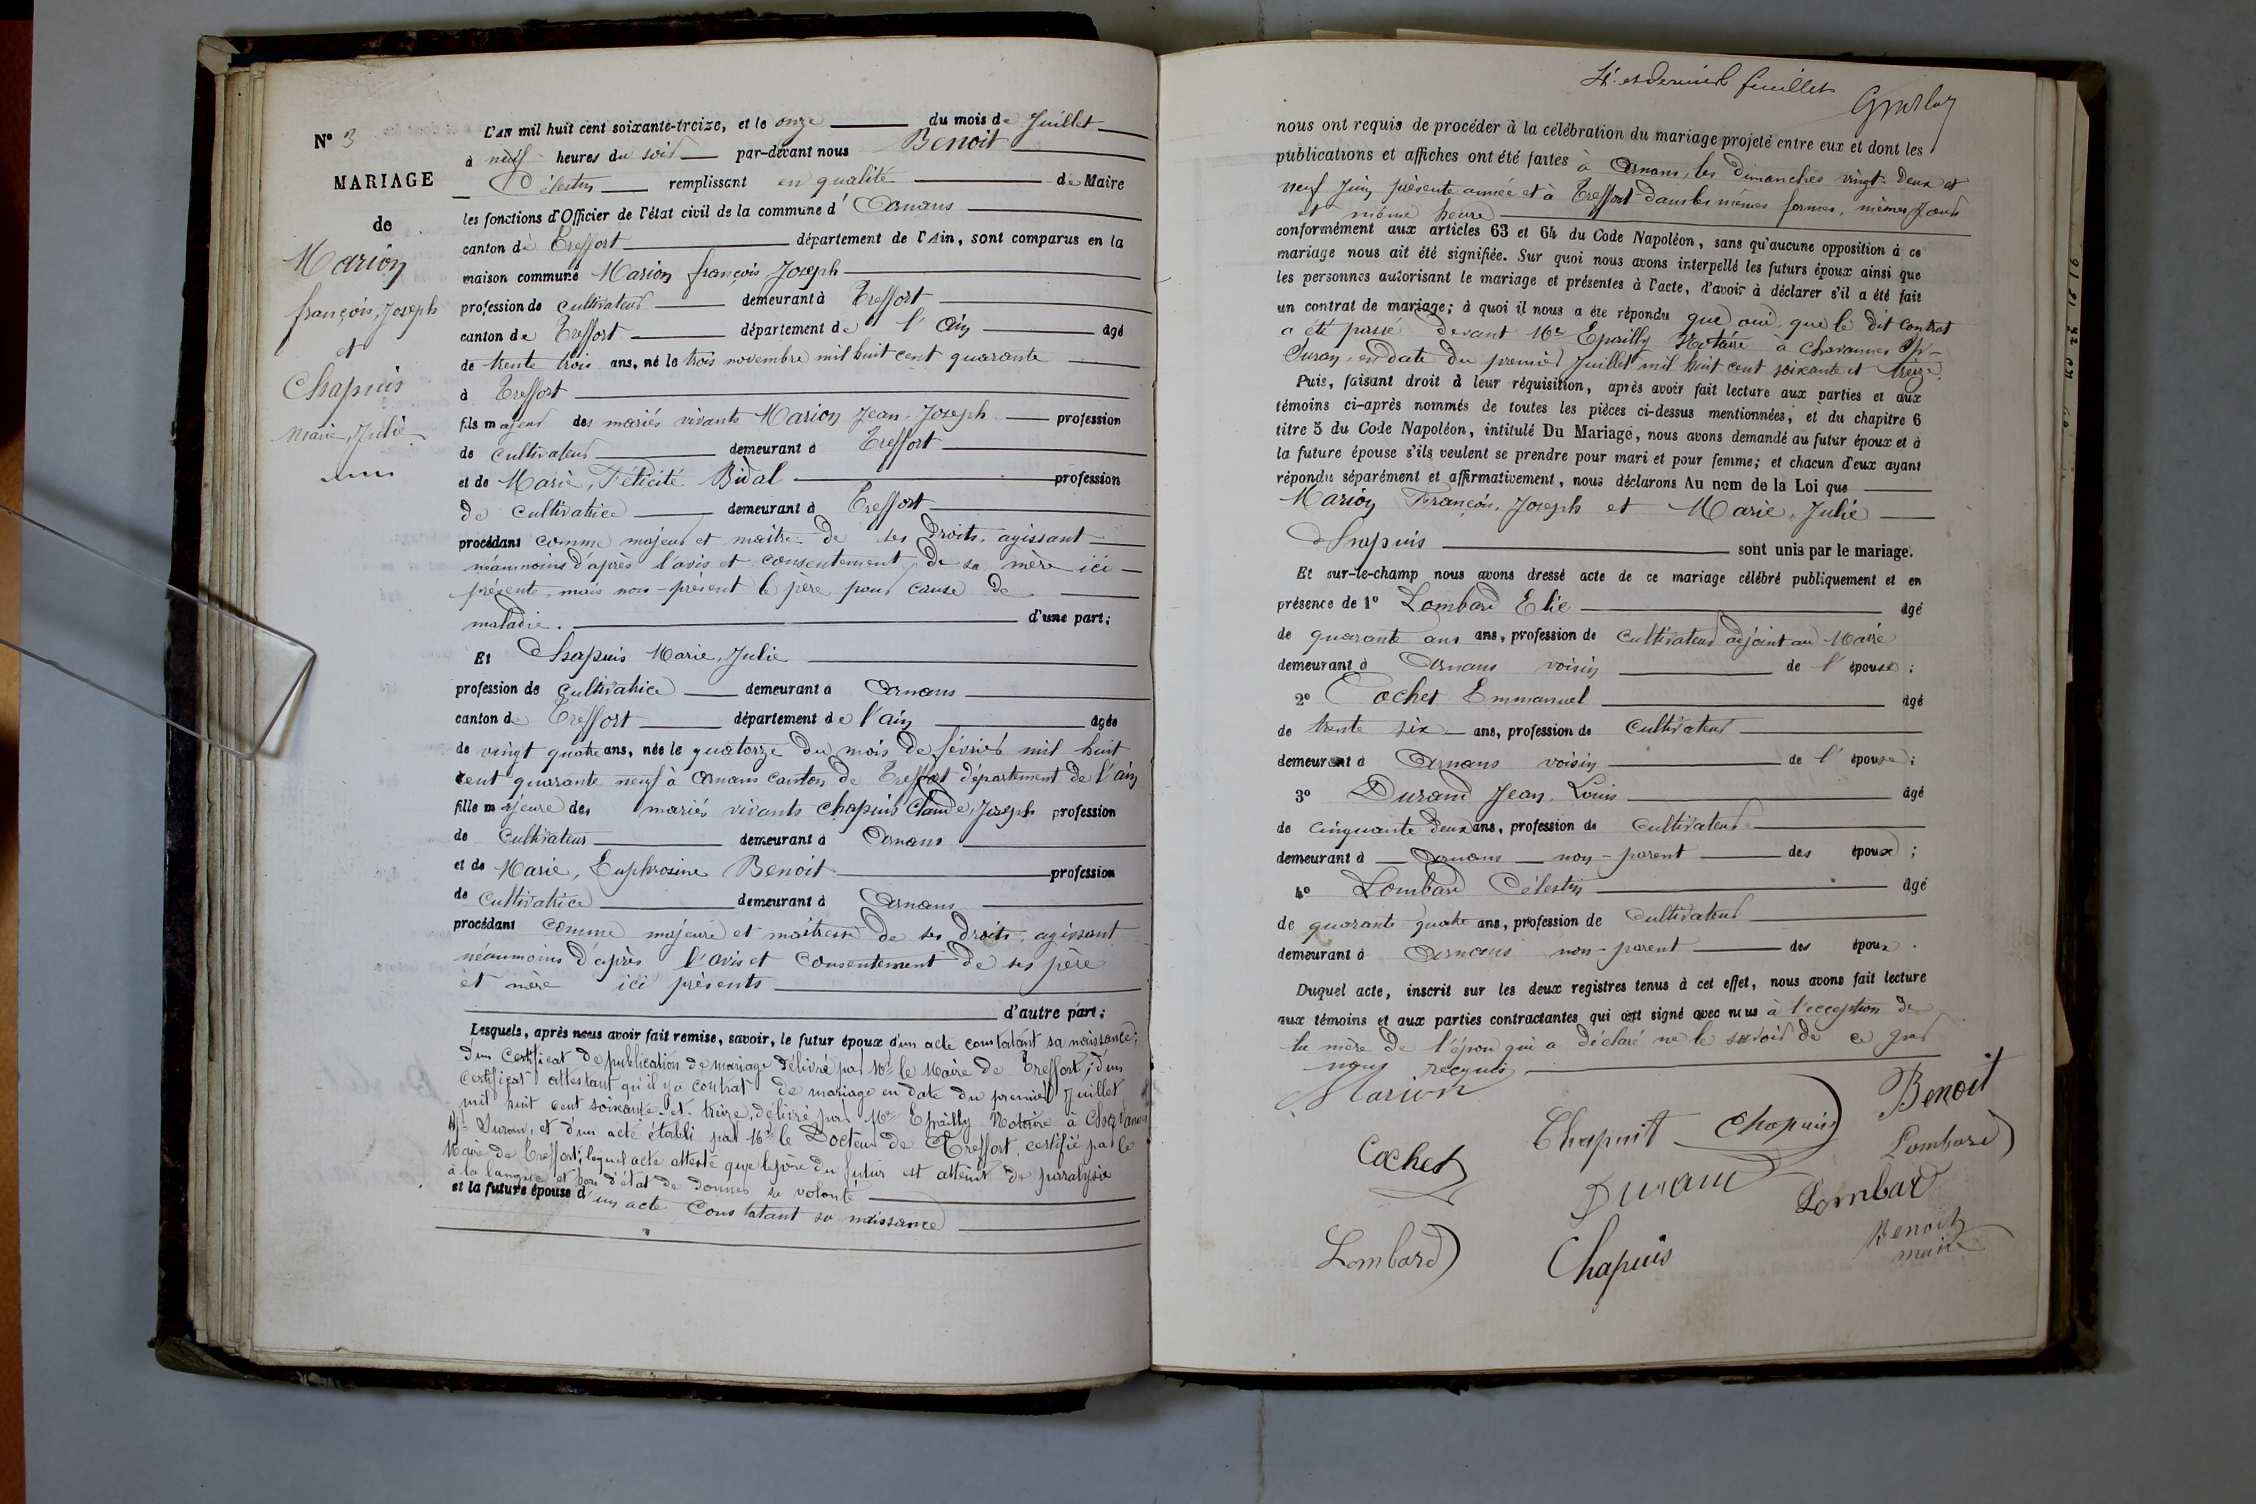 N° 3
MARIAGE
de
Marion
françois, Joseph
et
Chapuis
Marie, Julie
L'an mil huit cent soixante-treize, et le onze du mois de Juillet
à neuf heures du soir par-devant nous Benoit
Célestin remplissant en qualité de Maire
les fonctions d'Officier de l'état civil de la commune d' Arnans
canton de Treffort département de l'Ain, sont comparus en la
maison commune Marion françois, Joseph
profession de cultivateur demeurant à Treffort
canton de Treffort département de l'Ain âgé
de trente trois ans, né le trois novembre mil huit cent quarante
à Treffort
fils majeur des mariés vivants Marion Jean-Joseph profession
de cultivateur demeurant à Treffort
et de Marie, Félicité Bidal profession
de cultivatrice demeurant à Treffort
procédant comme majeur et maître de ses droits, agissant
néanmoins d'après l'avis et consentement de sa mère ici
présente, mais non-présent le père pour cause de
maladie. d'une part;
Et Chapuis Marie, Julie
profession de cultivatrice demeurant à Arnans
canton de Treffort département de l'ain âgée
de vingt quatre ans, née le quatorze du mois de février mil huit
cent quarante neuf à Arnans canton de Treffort département de l'ain
fille majeure des mariés vivants Chapuis Claude, Joseph profession
de cultivateur demeurant à Arnans
et de Marie, Euphrosine Benoit profession
de cultivatrice demeurant à Arnans
procédant comme majeure et maîtresse de ses droits, agissant
néanmoins d'après l'avis et consentement de ses père
et mère ici présents
d'autre part;
Lesquels, après nous avoir fait remise, savoir, le futur époux d'un acte constatant sa naissance;
d'un certificat de publication de mariage délivré par Mr le Maire de Treffort; d'un
certificat attestant qu'il y a contrat de mariage en date du premier Juillet
mil huit cent soixante-et-treize, délivré par Me Epailly Notaire à Chavannes
s/-Suran, et d'un acte établi par Mr le Docteur de Treffort, certifié par le
Maire de Treffort; lequel acte atteste que le père du futur est atteint de paralysie
à la langue et hors d'état de donner sa volonté
et la future épouse d'un acte constatant sa naissance
4e et dernier feuillet
nous ont requis de procéder à la célébration du mariage projeté entre eux et dont les
publications et affiches ont été faites à Arnans, les dimanches vingt-deux et
neuf Juin présente année et à Treffort dans les mêmes formes, mêmes jours
et même heure
conformément aux articles 63 et 64 du Code Napoléon, sans qu'aucune opposition à ce
mariage nous ait été signifiée. Sur quoi nous avons interpellé les futurs époux ainsi que
les personnes autorisant le mariage et présentes à l'acte, d'avoir à déclarer s'il a été fait
un contrat de mariage; à quoi il nous a été répondu que oui, que le dit contrat
a été passé devant Me Epailly Notaire à Chavannes s/-
Suran, en date du premier Juillet mil huit cent soixante et treize.
Puis, faisant droit à leur réquisition, après avoir fait lecture aux parties et aux
témoins ci-après nommés de toutes les pièces ci-dessus mentionnées, et du chapitre 6
titre 5 du Code Napoléon, intitulé Du Mariage, nous avons demandé au futur époux et à
la future épouse s'ils veulent se prendre pour mari et pour femme; et chacun d'eux ayant
répondu séparément et affirmativement, nous déclarons Au nom de la Loi que
Marion François, Joseph et Marie, Julie
Chapuis sont unis par le mariage.
Et sur-le-champ nous avons dressé acte de ce mariage célébré publiquement et en
présence de 1° Lombard Elie âgé
de quarante ans ans, profession de cultivateur adjoint au Maire
demeurant à Arnans voisin de l'épouse;
2° Cochet Emmanuel âgé
de trente six ans, profession de cultivateur
demeurant à Arnans voisin de l'épouse;
3° Durand Jean, Louis âgé
de cinquante deux ans, profession de cultivateur
demeurant à Arnans non-parent des époux;
4° Lombard Célestin âgé
de quarante quatre ans, profession de cultivateur
demeurant à Arnans non-parent des époux.
Duquel acte, inscrit sur les deux registres tenus à cet effet, nous avons fait lecture
aux témoins et aux parties contractantes qui ont signé avec nous à l'exception de
la mère de l'époux qui a déclaré ne le savoir de ce
requis
Marion
Benoit
Chapuis Chapuis
Lombard
Cochet
Durand
Lombard
Benoit
maire
Lombard
Chapuis